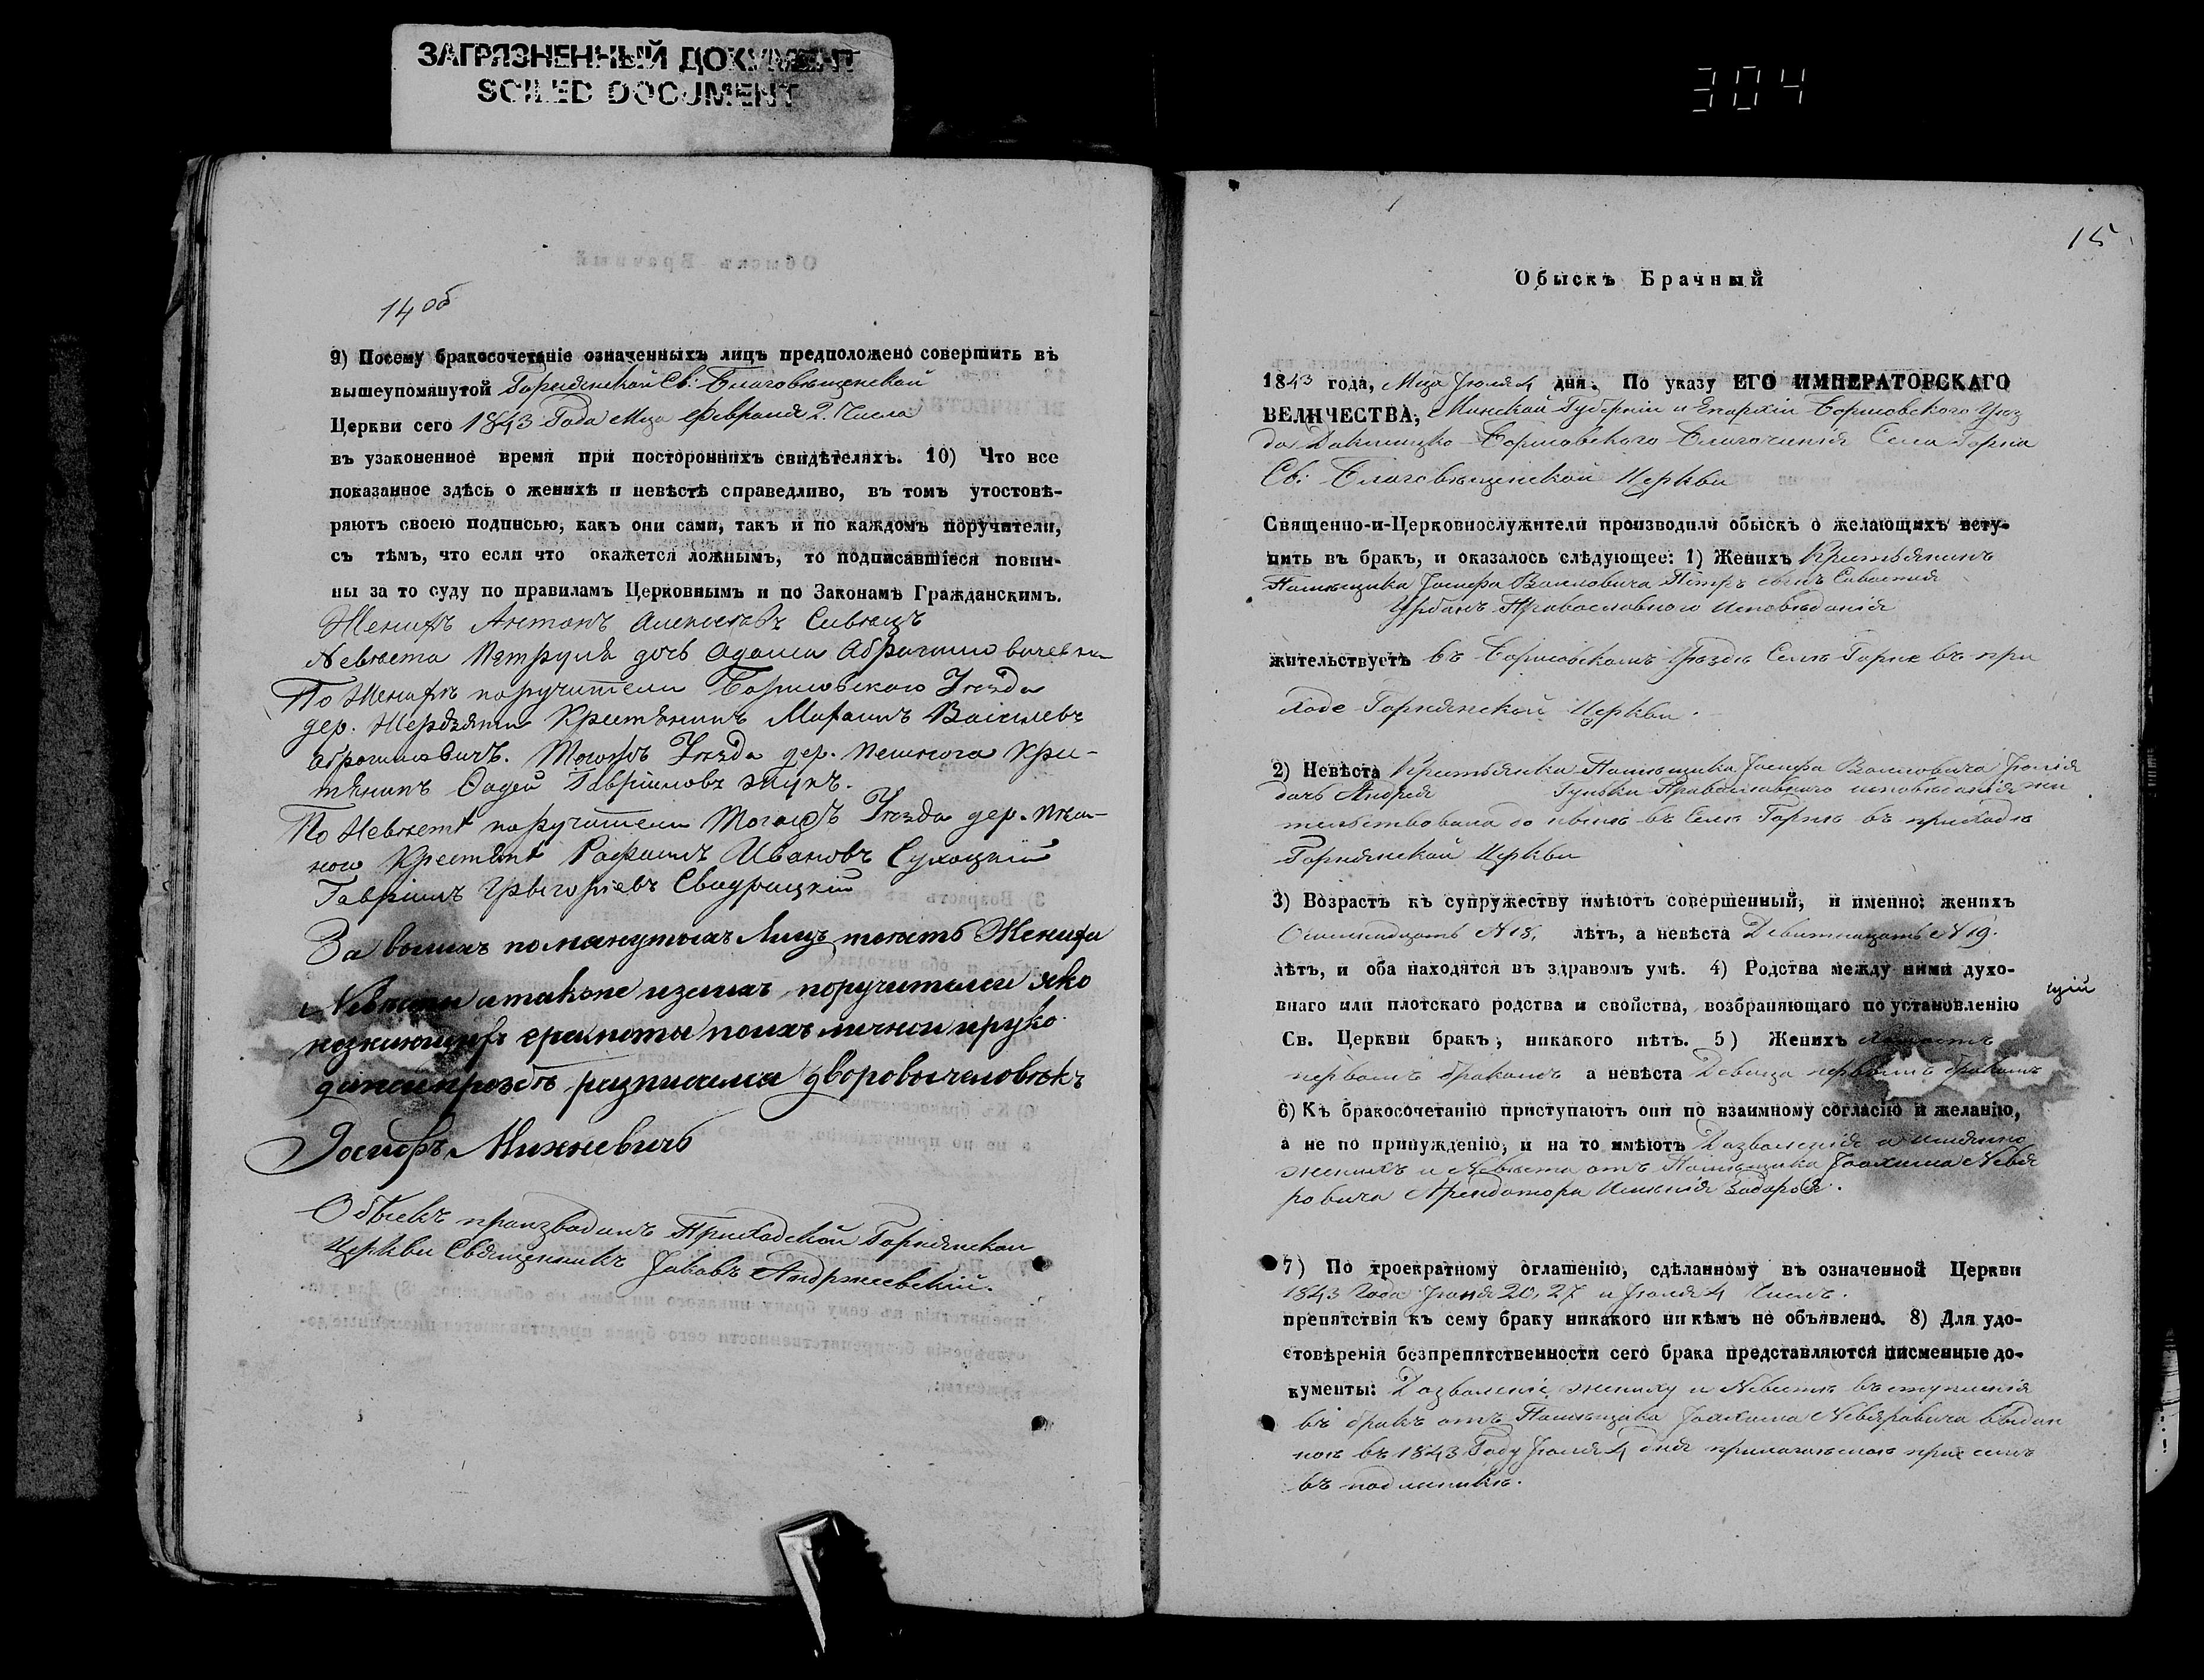 ЗАГРЯЗНЕННЫЙ ДОКУМЕНТ
SOILED DOCUMENT
304
14 об
9) Посему бракосочетаніе означенныхъ лицъ предположено совершить въ
вышеупомянутой Горнянской Св: Благовѣщенской
Церкви сего 1843 Года Мца Февраля 2. Числа
въ узаконенное время при постороннихъ свидѣтеляхъ. 10) Что все
показанное здѣсь о женихѣ и невѣстѣ справедливо, въ томъ утостовѣ-
ряютъ своею подписью, какъ они сами, такъ и по каждомъ поручители,
съ тѣмъ, что если что окажется ложнымъ, то подписавшіеся повин-
ны за то суду по правиламъ Церковнымъ и по Законамъ Гражданскимъ.
Женихъ Антонъ Алексѣевъ
Невѣста Петруля дочь Адама
По Женихѣ поручители Борисовского Уезда
дер. Крестянинъ Василевъ
Абрагимовичъ. Тогожъ Уезда дер. Кре-
тянинъ Фадей Гавріиловъ Жукъ.
По Невѣсте поручители Тогожъ Уезда дер.
Крестяне Рафаилъ Ивановъ Сухоцкій
Гавріилъ Грыгоріевъ
За всѣхъ помянутыхъ Лицъ тоесть Жениха
и Невѣсты атакже изъихъ поручителей яко
грамоты поихъ личной пруко
дворовы человѣкъ
Іосифъ Михневичъ
Обыскъ производилъ Приходской Горнянской
Церкви Священникъ Іаковъ Андржеевскій.
15
Обыскъ Брачный
1843 года, Мца Іюля 4 дня. По указу ЕГО ИМПЕРАТОРСКАГО
ВЕЛИЧЕСТВА, Минской Губерніи и Епархіи Борисовского Уез
да Докшицко-Борисовского Благочинія Села Горна
Св: Благовѣщенской Церкви
Священно-и-Церковнослужители производили обыскъ о желающихъ всту-
пить въ бракъ, и оказалось слѣдующее: 1) Женихъ Крестьянинъ
Помѣщика Іосифа Воиловича Петръ сынъ
Урбанъ Православного Исповѣданія
жительствуетъ въ Борисовскомъ Уездѣ Селѣ Горнѣ въ при
ходе Горнянской Церкви.
2) Невѣста Крестьянка Помѣщика Іосифа Воиловича Юлія
дочь Андрея Гуньки Православного исповѣданія жи
тельствовала до нынѣ въ Селѣ Горнѣ въ приходѣ
Горнянской Церкви
3) Возрастъ къ супружеству имѣютъ совершенный, и именно: женихъ
Осьмнадцать N 18. лѣтъ, а невѣста Девятнацать N 19.
лѣтъ, и оба находятся въ здравомъ умѣ. 4) Родства между ними духо-
внаго или плотскаго родства и свойства, возбраняющаго по установленію
щій
Св. Церкви бракъ, никакого нѣтъ. 5) Женихъ Холостъ
первымъ бракомъ а невѣста Девица первымъ бракомъ
6) Къ бракосочетанію приступаютъ они по взаимному согласію и желанію,
а не по принужденію, и на то имѣютъ Дозволеніе а именно
женихъ и Невѣста отъ Помѣщика Іоахима Невя
ровича Арендатора Именія
7) По троекратному оглашенію, сдѣланному въ означенной Церкви
1843 Года Іюня 20, 27 и Іюля 4 Числъ.
препятствія къ сему браку никакого ни кѣмъ не объявлено. 8) Для удо-
стовѣренія безпрепятственности сего брака представляются писменные до-
кументы: Дозволеніе жениху и Невестѣ вступленія
въ бракъ отъ Помѣщика Іоахима Невяровича выдан
ное въ 1843 Году Іюля 4 дня прилагаемое при семъ
въ подлинникѣ.